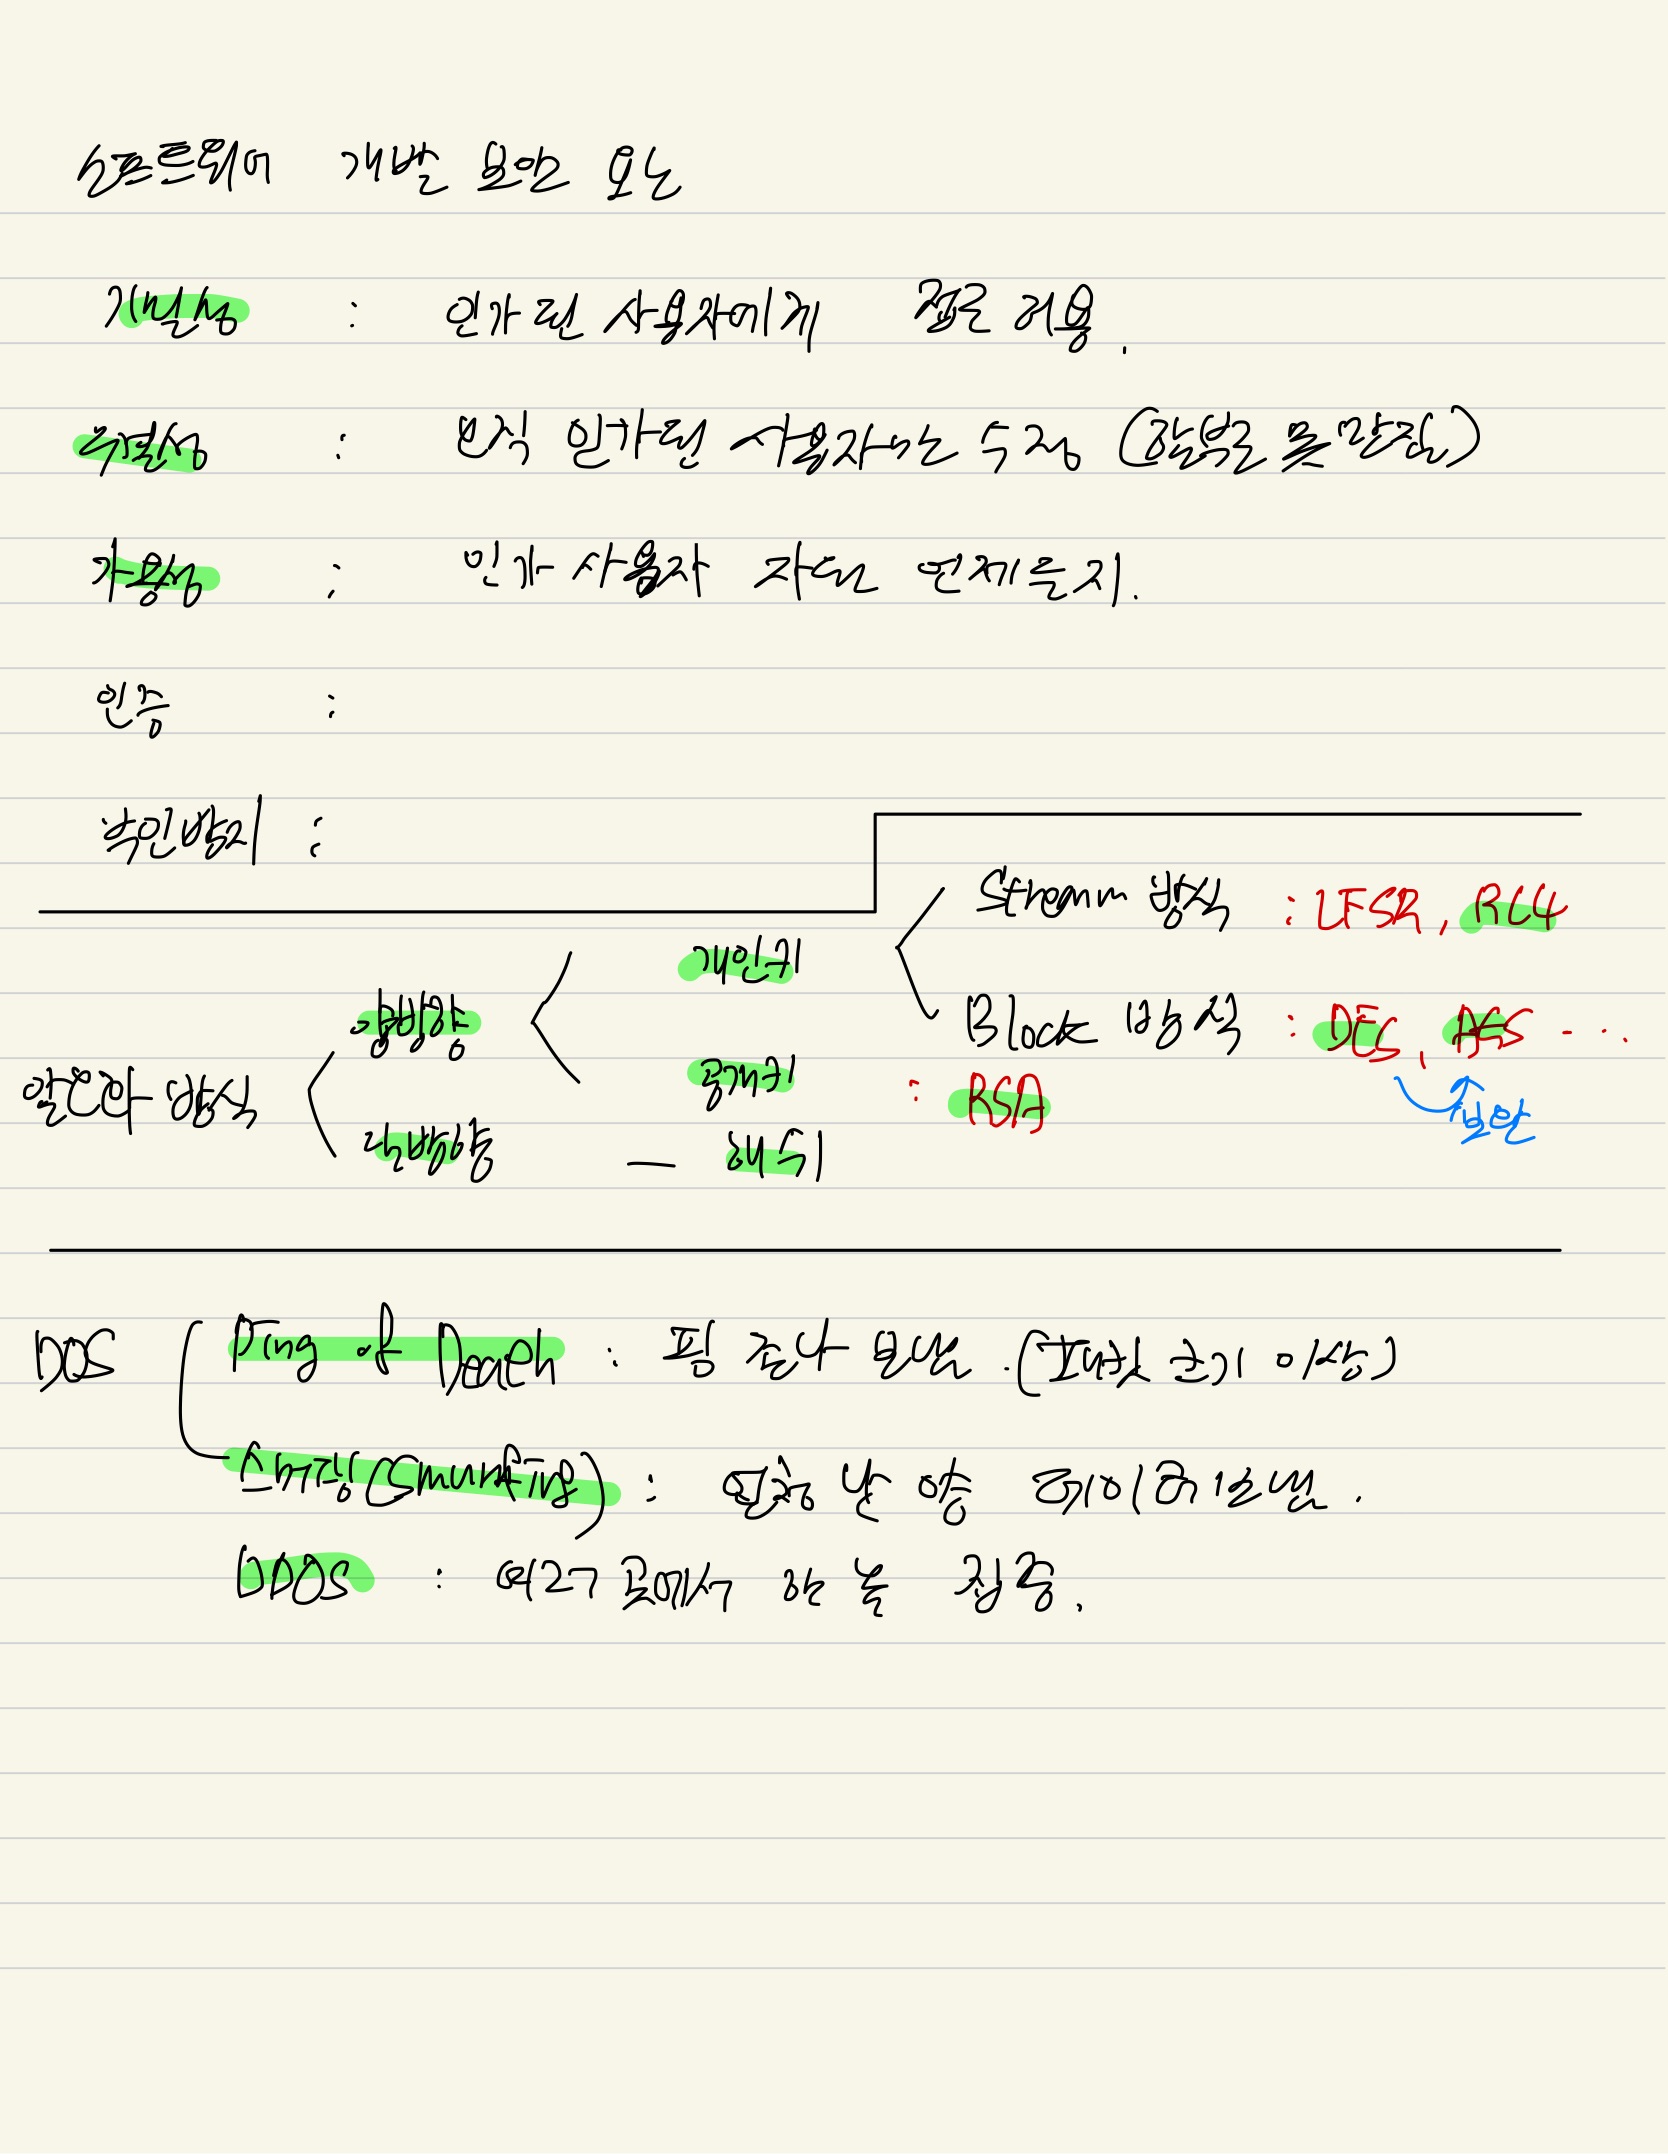 소프트웨어 개발 보안 요소
기밀성 : 인가된 사용자에게 접근 허용.
무결성 : 오직 인가된 사용자만 수정 (함부로 못 만짐)
가용성 : 인가 사용자 자원 언제든지.
인증 :
부인방지 :
Stream 방식 : LFSR, RC4
개인키
양방향
Block 방식 : DES, AES ...
암호화 방식
공개키 : RSA
보완
단방향 — 해쉬
DOS
Ping of Death : 핑 존나 보냄. (패킷 크기 이상)
스머핑(Smurfing) : 엄청 난 양
DDOS : 여러 곳에서 한 놈 집중.